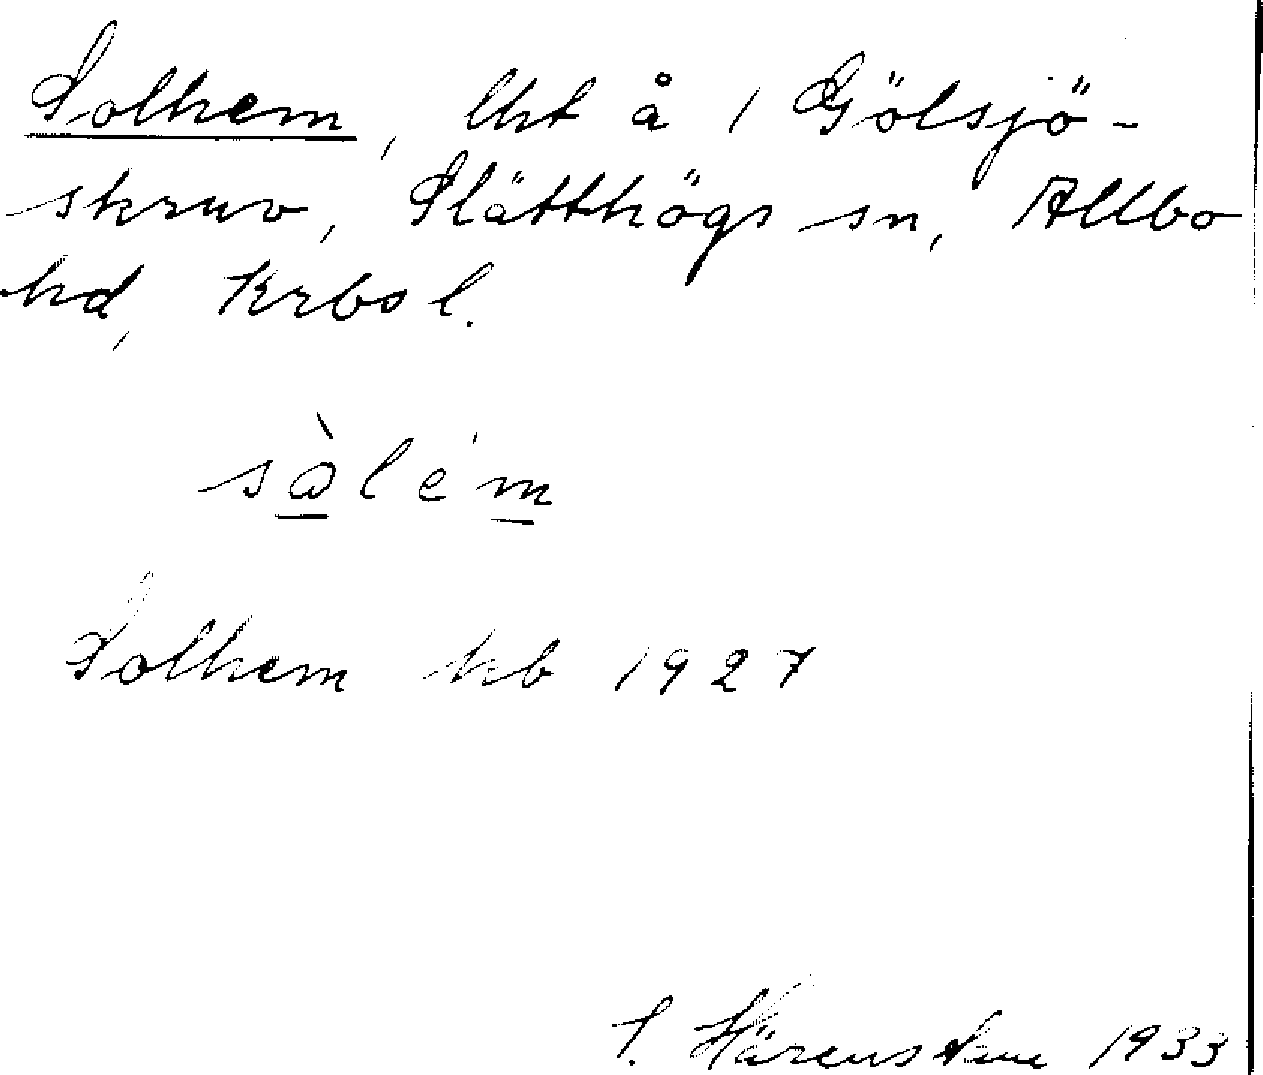 Solhem, lht å 1 Gölsjö-
skruv, Slätthögs sn, Allbo
hd, Krbs l.
sàlém
Solhem kb 1927
S. 1933